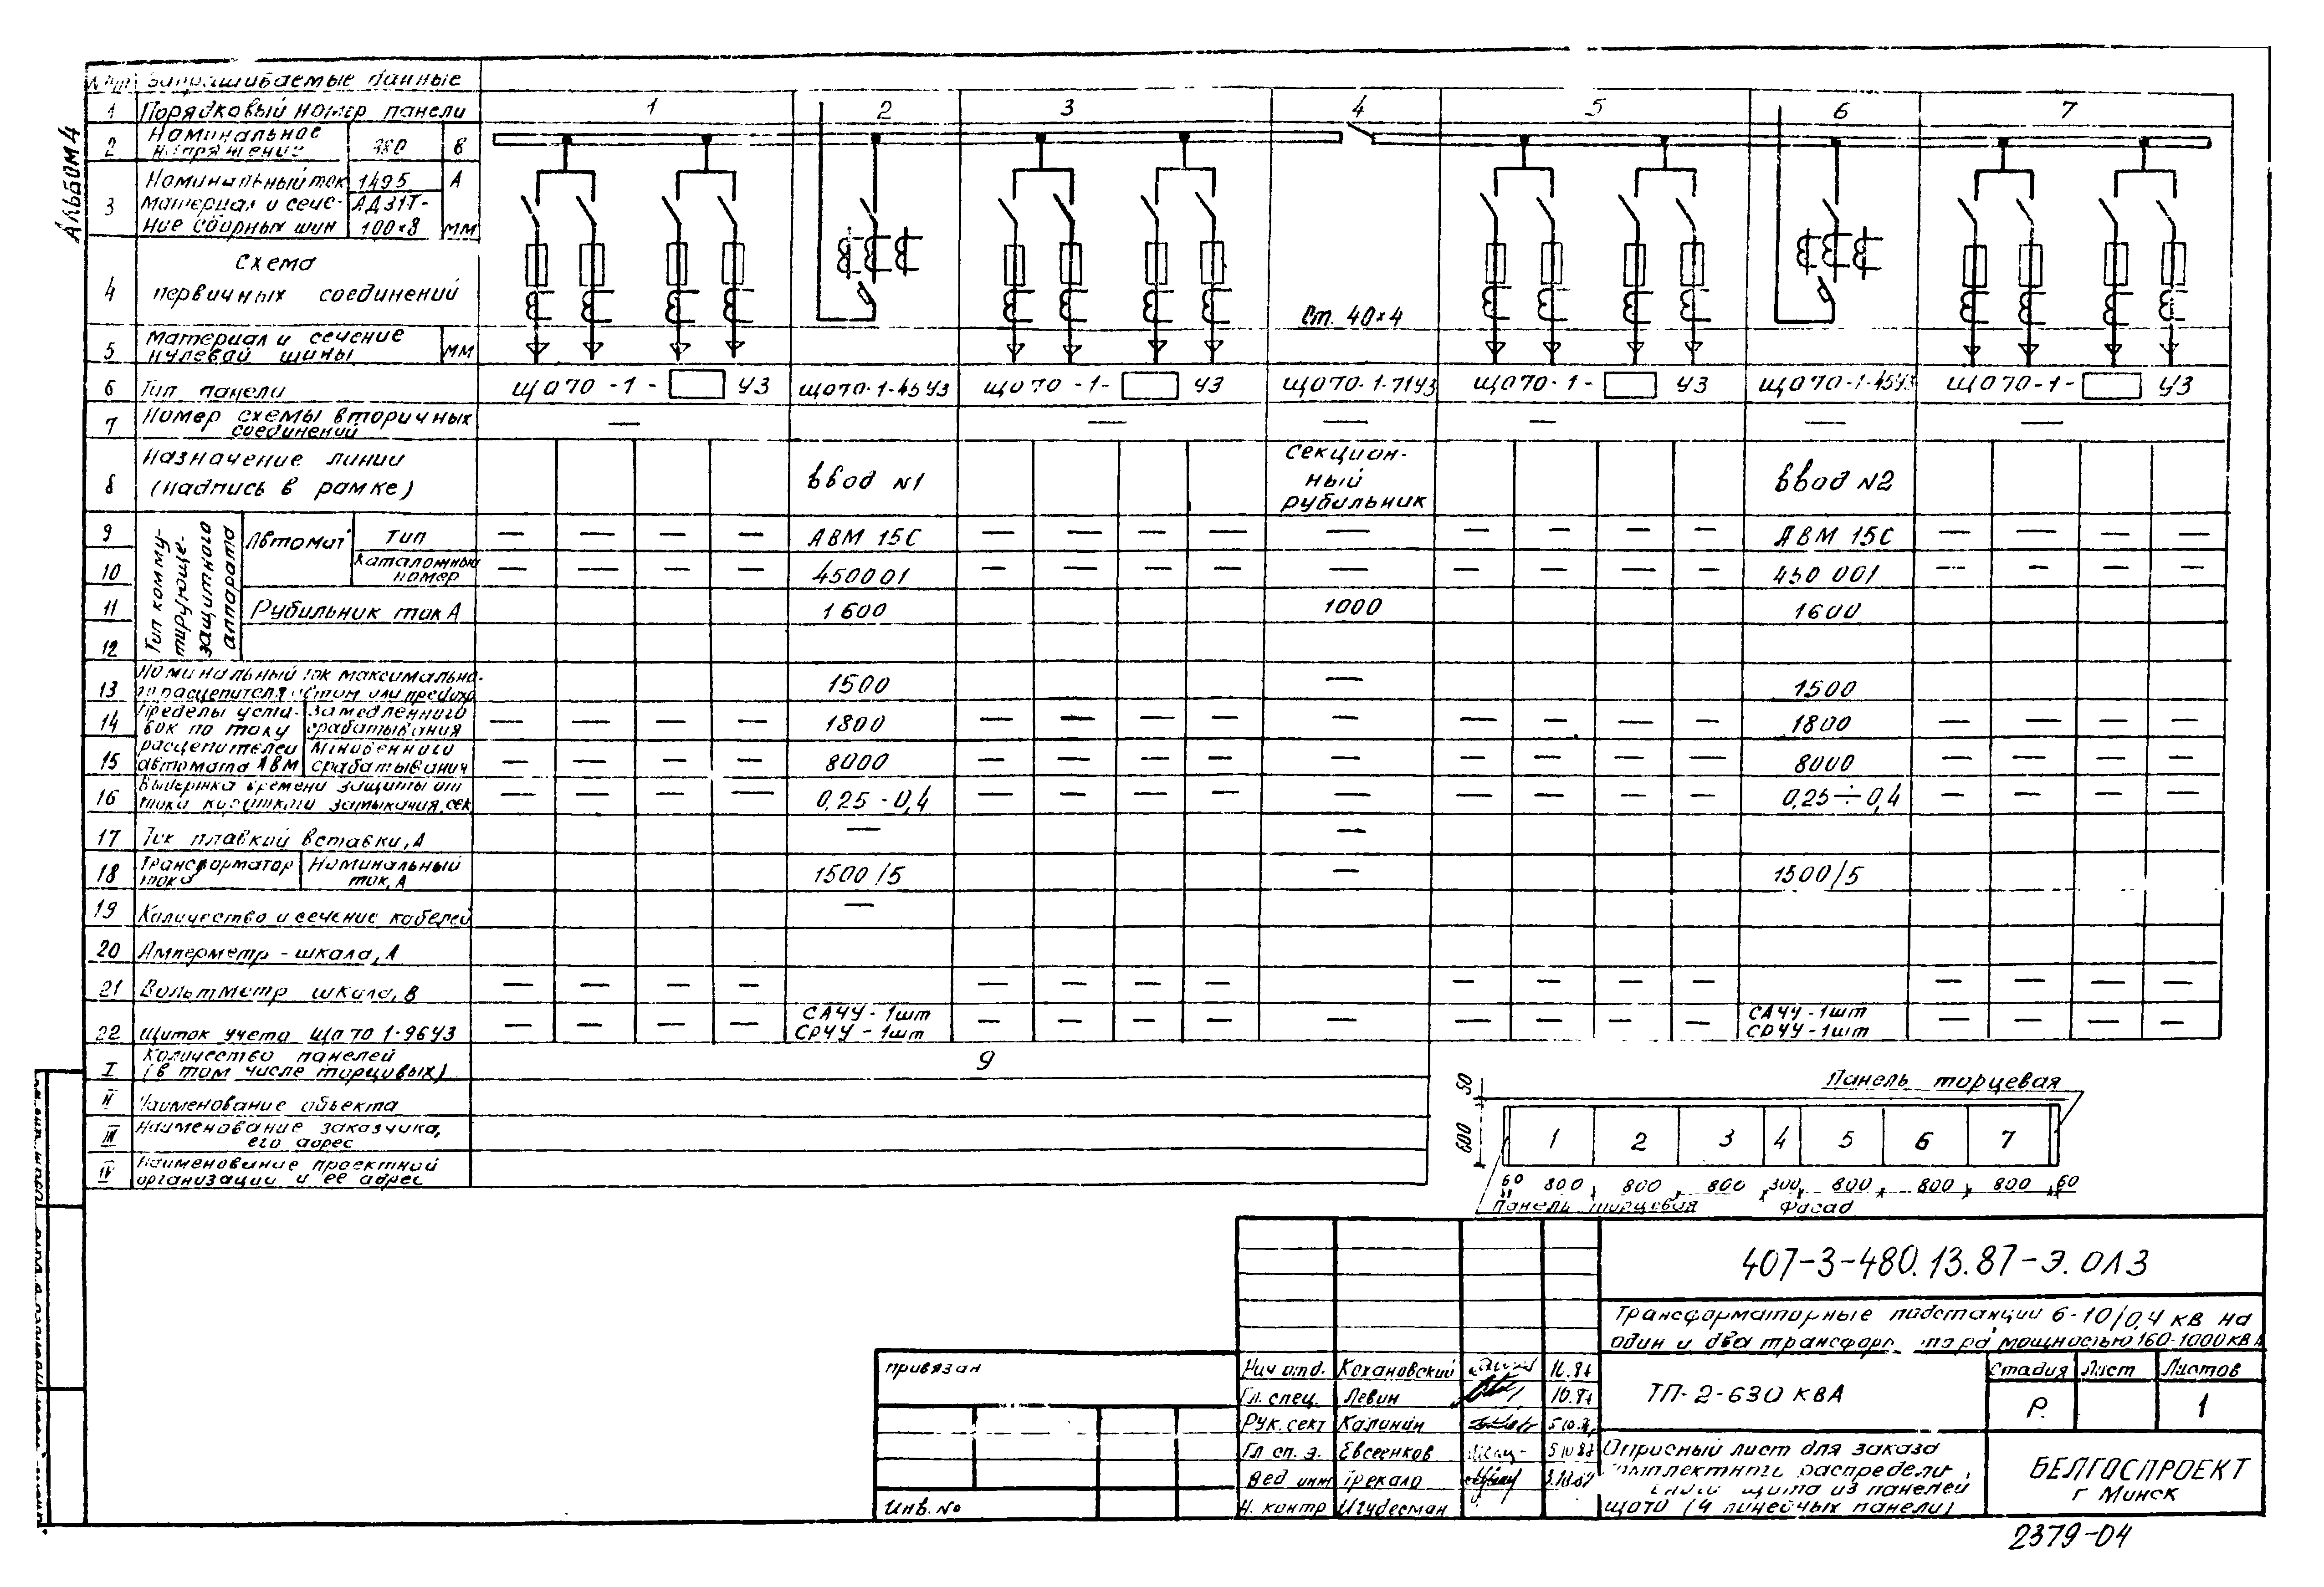 Альбом 4
Запрашиваемые данные
1 Порядковый номер панели 1 2 3 4 5 6 7
2 Номинальное напряжение 380 В
3 Номинальный ток 1495 А
материал и сече-
ние сборных шин
АД31Т-
100×8 мм
4 Схема
первичных соединений
Ст. 40×4
5 материал и сечение
нулевой шины мм
6 Тип панели ЩО70-1- УЗ ЩО70-1-45УЗ ЩО70-1- УЗ ЩО70-1-71УЗ ЩО70-1- УЗ ЩО70-1-45УЗ ЩО70-1- УЗ
7 Номер схемы вторичных
соединений — — — — — —
8 Назначение линии
(надпись в рамке)
Ввод N1
Секцион-
ный
рубильник
Ввод N2
Тип комму-
тирующе-
защитного
аппарата
9 Автомат Тип — — — — АВМ 15С — — — — — — — — — АВМ 15С — — — —
10 Каталожный
номер — — — — 450001 — — — — — — — — — 450 001 — — — —
11 Рубильник ток А 1600 1000 1600
12
13 Номинальный ток максимально-
го расцепителя автом. или предохр. 1500 — 1500
Пределы уста-
вок по току
расцепителей
автомата АВМ
14 замедленного
срабатывания — — — — 1800 — — — — — — — — — 1800 — — — —
15 мгновенного
срабатывания — — — — 8000 — — — — — — — — — 8000 — — — —
16 Выдержка времени защиты от
тока короткого замыкания, сек — — — — 0,25-0,4 — — — — — — — — — 0,25÷0,4 — — — —
17 Ток плавкой вставки, А — —
18 Трансформатор
тока Номинальный
ток, А 1500/5 — 1500/5
19 Количество и сечение кабелей —
20 Амперметр - шкала, А
21 Вольтметр шкала, В — — — — — — — — — — — — — — — —
22 Щиток учета ЩО70 1-96УЗ — — — — САЧУ-1шт
СРЧУ-1шт — — — — — — — — — САЧУ-1шт
СРЧУ-1шт — — — —
I Количество панелей
(в том числе торцовых) 9
II Наименование объекта
III Наименование заказчика,
его адрес
IV Наименование проектний
организации и её адрес
Панель торцевая
50
600
1 2 3 4 5 6 7
60 800 800 800 300 800 800 800 60
Панель торцевая Фасад
407-3-480.13.87-Э.ОЛ3
Трансформаторные подстанции 6-10/0,4 кв на
один и два трансформатора мощностью 160-1000 кВА
привязан
Инв. №
Нач отд. Кохановский 10.87
Гл. спец. Левин 10.87
Рук. сект Калинин
Гл сп. э. Евсеенков
Вед инж Грекало
Н. контр Игудесман
ТП-2-630 КВА
Стадия Лист Листов
Р. 1
Опросный лист для заказа
комплектного распредели
щита из панелей
ЩО70 (4 линейных панели)
БЕЛГОСПРОЕКТ
г Минск
2379-04